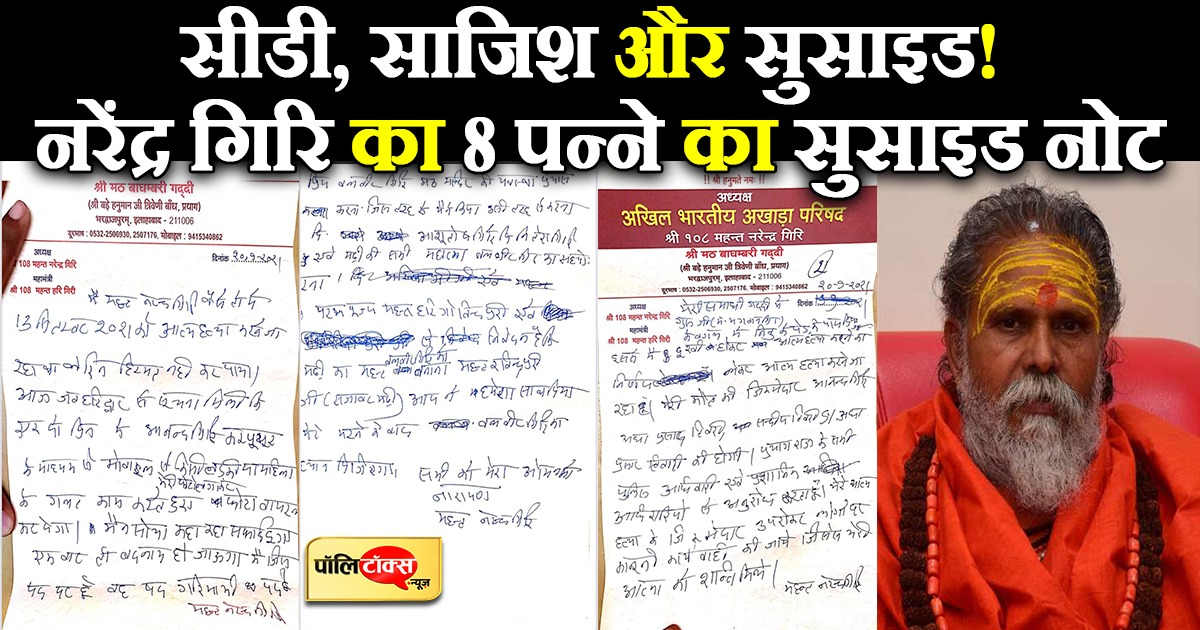 सीडी, साजिश और सुसाइड!
नरेंद्र गिरि का 8 पन्ने का सुसाइड नोट
श्री मठ बाघम्बरी गद्दी
(श्री बड़े हनुमान जी त्रिवेणी बाँध, प्रयाग)
भरद्वाजपुरम्, इलाहाबाद - 211006
दूरभाष : 0532-2506930, 2507176, मोबाइल : 9415340862
अध्यक्ष
108 महन्त नरेन्द्र गिरि
महामंत्री
श्री 108 महन्त हरि गिरी
दिनांक
मैं महन्त नरेन्द्र गिरि
13 सितम्बर 2021 को आत्महत्या करने जा
रहा था लेकिन हिम्मत नहीं कर पाया।
आज जब हरिद्वार से सूचना मिली कि
एक दो दिन में आनन्द गिरि कम्प्यूटर
के माध्यम से मोबाइल से
के गलत काम करते हुए फोटो वायरल
कर देगा। मैंने सोचा कहाँ कहाँ सफाई दूंगा
एक बार तो बदनाम हो जाऊंगा मैं जिस
पद पर हूँ वह पद गरिमामयी पद है
महन्त नरेन्द्र गिरि
प्रिय बलवीर गिरि मठ मन्दिर की व्यवस्था प्रयास
करना जिस तरह से मैंने किया उसी तरह से करना
परम पूज्य महन्त हरि गोविन्द पुरी
से निवेदन है कि
मढ़ी का महन्त बलवीर गिरि को बनाना महन्त रविन्द्र पुरी
जी (सजावट मढ़ी) आप ने हमेशा साथ दिया
मेरे मरने के बाद बलवीर गिरि का
ध्यान दिजिएगा सभी को मेरा ओम नमो
नारायण
महन्त नरेन्द्र गिरि
पॉलिटॉक्स
.न्यूज
!! श्री हनुमते नमः !!
अध्यक्ष
अखिल भारतीय अखाड़ा परिषद
श्री १०८ महन्त नरेन्द्र गिरि
श्री मठ बाघम्बरी गद्दी
(श्री बड़े हनुमान जी त्रिवेणी बाँध, प्रयाग)
भरद्वाजपुरम्, इलाहाबाद - 211006
दूरभाष : 0532-2506930, 2507176, मोबाइल : 9415340862
अध्यक्ष
श्री 108 महन्त नरेन्द्र गिरि
महामंत्री
श्री 108 महन्त हरि गिरी
दिनांक
20-9-2021
मेरी समाधी गद्दी में
गुरु जी के बगल में नीबू के पेड़ के पास दिया
आत्म हत्या करने का
निर्णय लेकर आत्म हत्या करने जा
रहा हूँ। मेरी मौत की जिम्मेदार आनन्द गिरि
आद्या प्रसाद तिवारी संदीप तिवारी आद्या
प्रसाद तिवारी की होगी। प्रयागराज के सभी
पुलिस अधिकारी एवं प्रशासनिक
अधिकारियों से अनुरोध करता हूँ। मेरे आत्म
हत्या के जिम्मेदार उपरोक्त लोगों पर
कानूनी कार्यवाही की जाये जिससे मेरी
आत्मा को शान्ति मिले।
महन्त नरेन्द्र गिरि